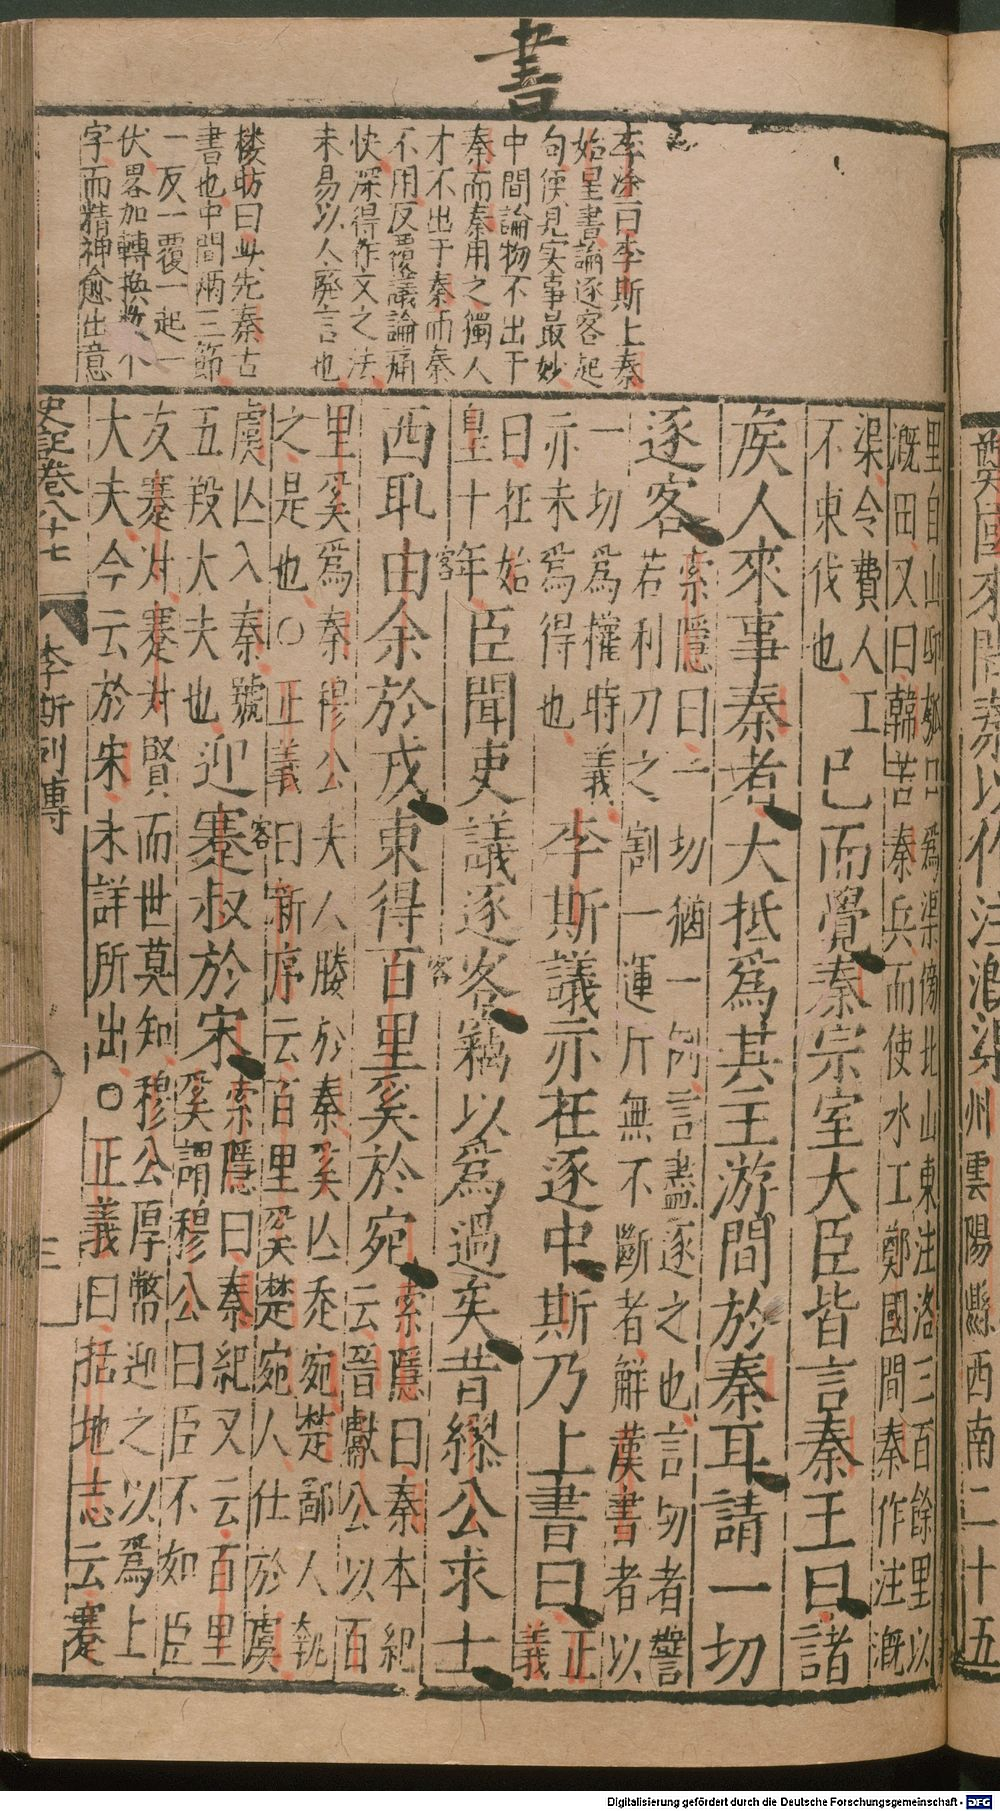 書
李塗曰李斯上秦
始皇書論逐客起
句便見实事最妙
中間論物不出于
秦而秦用之獨人
才不出于秦而秦
不用反覆議論痛
快深得作文之法
未易以人廢言也
楼昉曰此先秦古
書也中間兩三節
一反一覆一起一
伏畧加轉換数个
字而精神愈出意
里自山邸瓠口爲渠傍北山東注洛三百餘里以
溉田又曰韓苦秦兵而使水工鄭國間秦作注溉
渠令費人工
不東伐也
已而覺秦宗室大臣皆言秦王曰諸
矦人來事秦者大抵爲其主游間於秦耳請一切
逐客
索隱曰一切猶一例言盡逐之也言切者譬
若利刀之割一運斤無不斷者解漢書者以
一切爲權時義
亦未爲得也
李斯議亦在逐中斯乃上書曰
正
義
曰在始
皇十年
臣聞吏議逐客竊以爲過矣昔繆公求士
西取由余於戎東得百里奚於宛
索隱曰秦本紀
云晉獻公以百
里奚爲秦穆公夫人媵於秦奚亾走宛楚鄙人執
之是也○正義曰新序云百里奚楚宛人仕於虞
虞亾入秦號
五羖大夫也
迎蹇叔於宋
索隱曰秦紀又云百里
奚謂穆公曰臣不如臣
友蹇叔蹇叔賢而世莫知穆公厚幣迎之以爲上
大夫今云於宋未詳所出○正義曰括地志云蹇
客
客
客
史記卷八十七
李斯列傳
三
鄭國來間秦以作注溉渠
州雲陽縣西南二十五
Digitalisierung gefördert durch die Deutsche Forschungsgemeinschaft - DFG